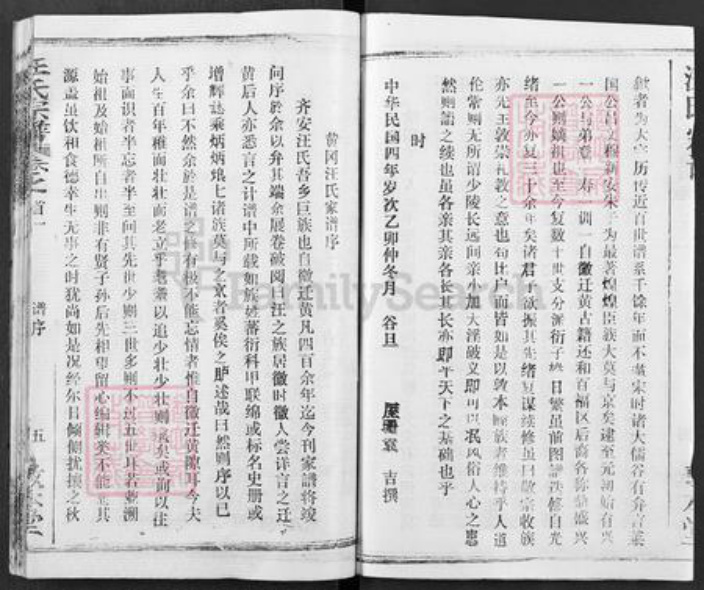 敘者为大宗历传近百世谱系千馀年而不
国公昌文穆新安朱子为最著煌煌臣族大莫与京矣建至元初始有兴
一公与弟 寿 训一自徽迁黄古籍还和百福区后裔各
一公则 祖也至今复数十世支分派衍子 日繁虽前图谱迭修自光
绪至今亦复三十余年矣诸君 欲振其先绪复谋续修虽曰敬宗收族
亦先王敦崇礼教之意也苟比户而皆如是以敦本睦族者维持乎人道
伦常则无所谓少陵长远间亲小加大淫破义即可以泯风俗人心之患
然则谱之续也虽各亲其亲各长其长亦即平天下之基础也乎
时
中华民国四年岁次乙卯仲冬月 谷旦 屋珊袁 吉撰
黄冈汪氏家谱序
齐安汪氏吾乡巨族也自徽迁黄凡四百余年迄今刊家谱将竣
问序于余以弁其端余展卷破阅曰汪之族居徽时徽人尝详言之迁
黄后人亦悉言之计谱中所载如族姓蕃衍科甲联绵或标名史册或
增辉誌乘炳炳烺烺诸族莫与之京者奚俟之胪述哉曰然则序以已
乎余曰不然余于是谱之修有极不能忘情者惟自徽迁黄 耳今夫
人生百年稚而壮壮而老立乎耄耋以追少壮少壮则 矣或而以往
事面识者半忘者半至问其先世少则三世多则不过五世耳若 溯
始祖及始祖所自出则非有贤子孙后先相望留心编辑奚不能 其
源盖虽饮和食德幸生无事之时犹尚如是况经尔日倾侧扰攘之秋
汪氏宗谱 卷之首一 谱序 五 敦本堂
FamilySearch